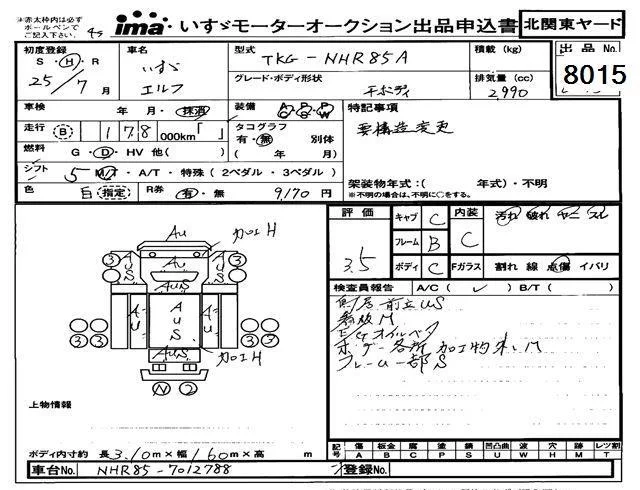 ※赤太枠内は必ず
ボールペンで
ご記入下さい
ima いすゞモーターオークション出品申込書 北関東ヤード
初度登録 車名 型式 TKG-NHR85A 積載(kg) 出品No.
S・H・R いすゞ グレード・ボディ形状 排気量(cc) 8015
25年 7月 エルフ 平ボディ 2,990
車検 年・月・抹消 装備 A/C P/S P/W 特記事項
走行 (B) 178 000km「 」 タコグラフ 有・無 別体 要構造変更
燃料 G・D・HV 他( ) ( 年 月)
シフト 5 M/T・A/T・特殊(2ペダル・3ペダル) 架装物年式:( 年式)・不明
※不明の場合は、不明に○をする。
色 白 指定 R券 有・無 9,170円
評価 3.5 キャブ C 内装 C 汚れ 破れ ヤニ スレ
フレーム B
ボディ C Fガラス 割れ 線 点傷 イバリ
検査員報告 A/C( ✓ ) B/T( )
前立US
M
E/Gオイル
ボデー各所 加工物 M
フレーム一部S
Au 加工H
③ AUS AUS ③
AuS
AU AUS AU
③ AUS ③
加工H
N 2
上物情報
ボディ内寸約 長3.10m×幅1.60m×高 m
記号 傷 A 板金 B 腐 C 塗 P 錆 S 凹凸曲 U 波 W 穴 H 商 M レツ割 T
車台No. NHR85-7012788 登録No.